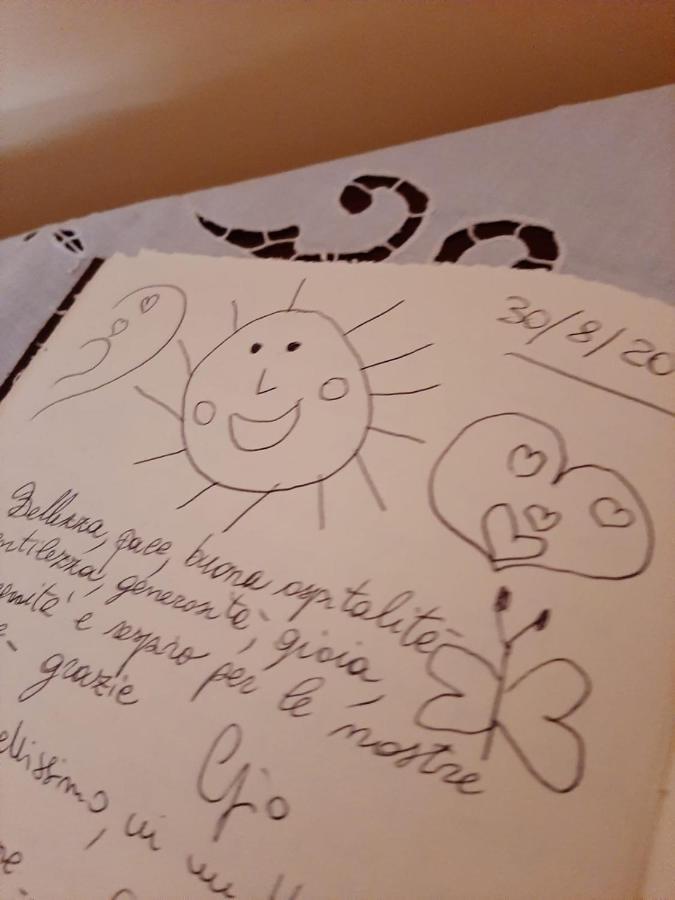 30/8/20
Bellezza, pace, buona ospitalità
ntilezza, generosità, gioia,
enità e respiro per le nostre
e - grazie
Gio
ellissimo, in un
ne